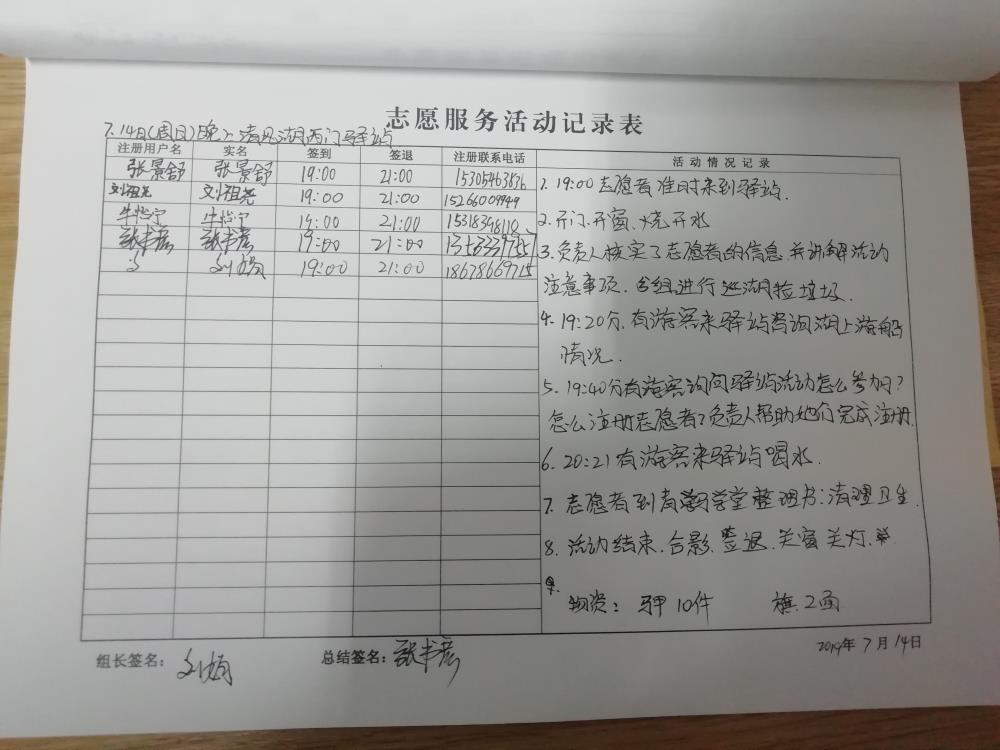 志愿服务活动记录表
7.14日(周日)晚上清风湖西门驿站
注册用户名 实名 签到 签退 注册联系电话 活动情况记录
张景舒 张景舒 19:00 21:00 15305463836
刘祖尧 刘祖尧 19:00 21:00 15266009949
牛怡宁 牛怡宁 19:00 21:00 15318348110
张书彦 张书彦 19:00 21:00
刘娟 19:00 21:00 18678669715
1. 19:00志愿者准时来到驿站.
2. 开门.开窗.烧开水
3. 负责人核实了志愿者的信息.并讲解活动
注意事项.分组进行巡湖捡垃圾.
4. 19:20分.有游客来驿站咨询湖上游船
情况.
5. 19:40分有游客询问驿站活动怎么参加?
怎么注册志愿者?负责人帮助她们完成注册.
6. 20:21有游客来驿站喝水.
7. 志愿者到青学堂整理书.清理卫生.
8. 活动结束.合影.签退.关窗关灯.
物资: 马甲10件 旗2面
组长签名: 刘娟 总结签名: 张书彦 2019年7月14日